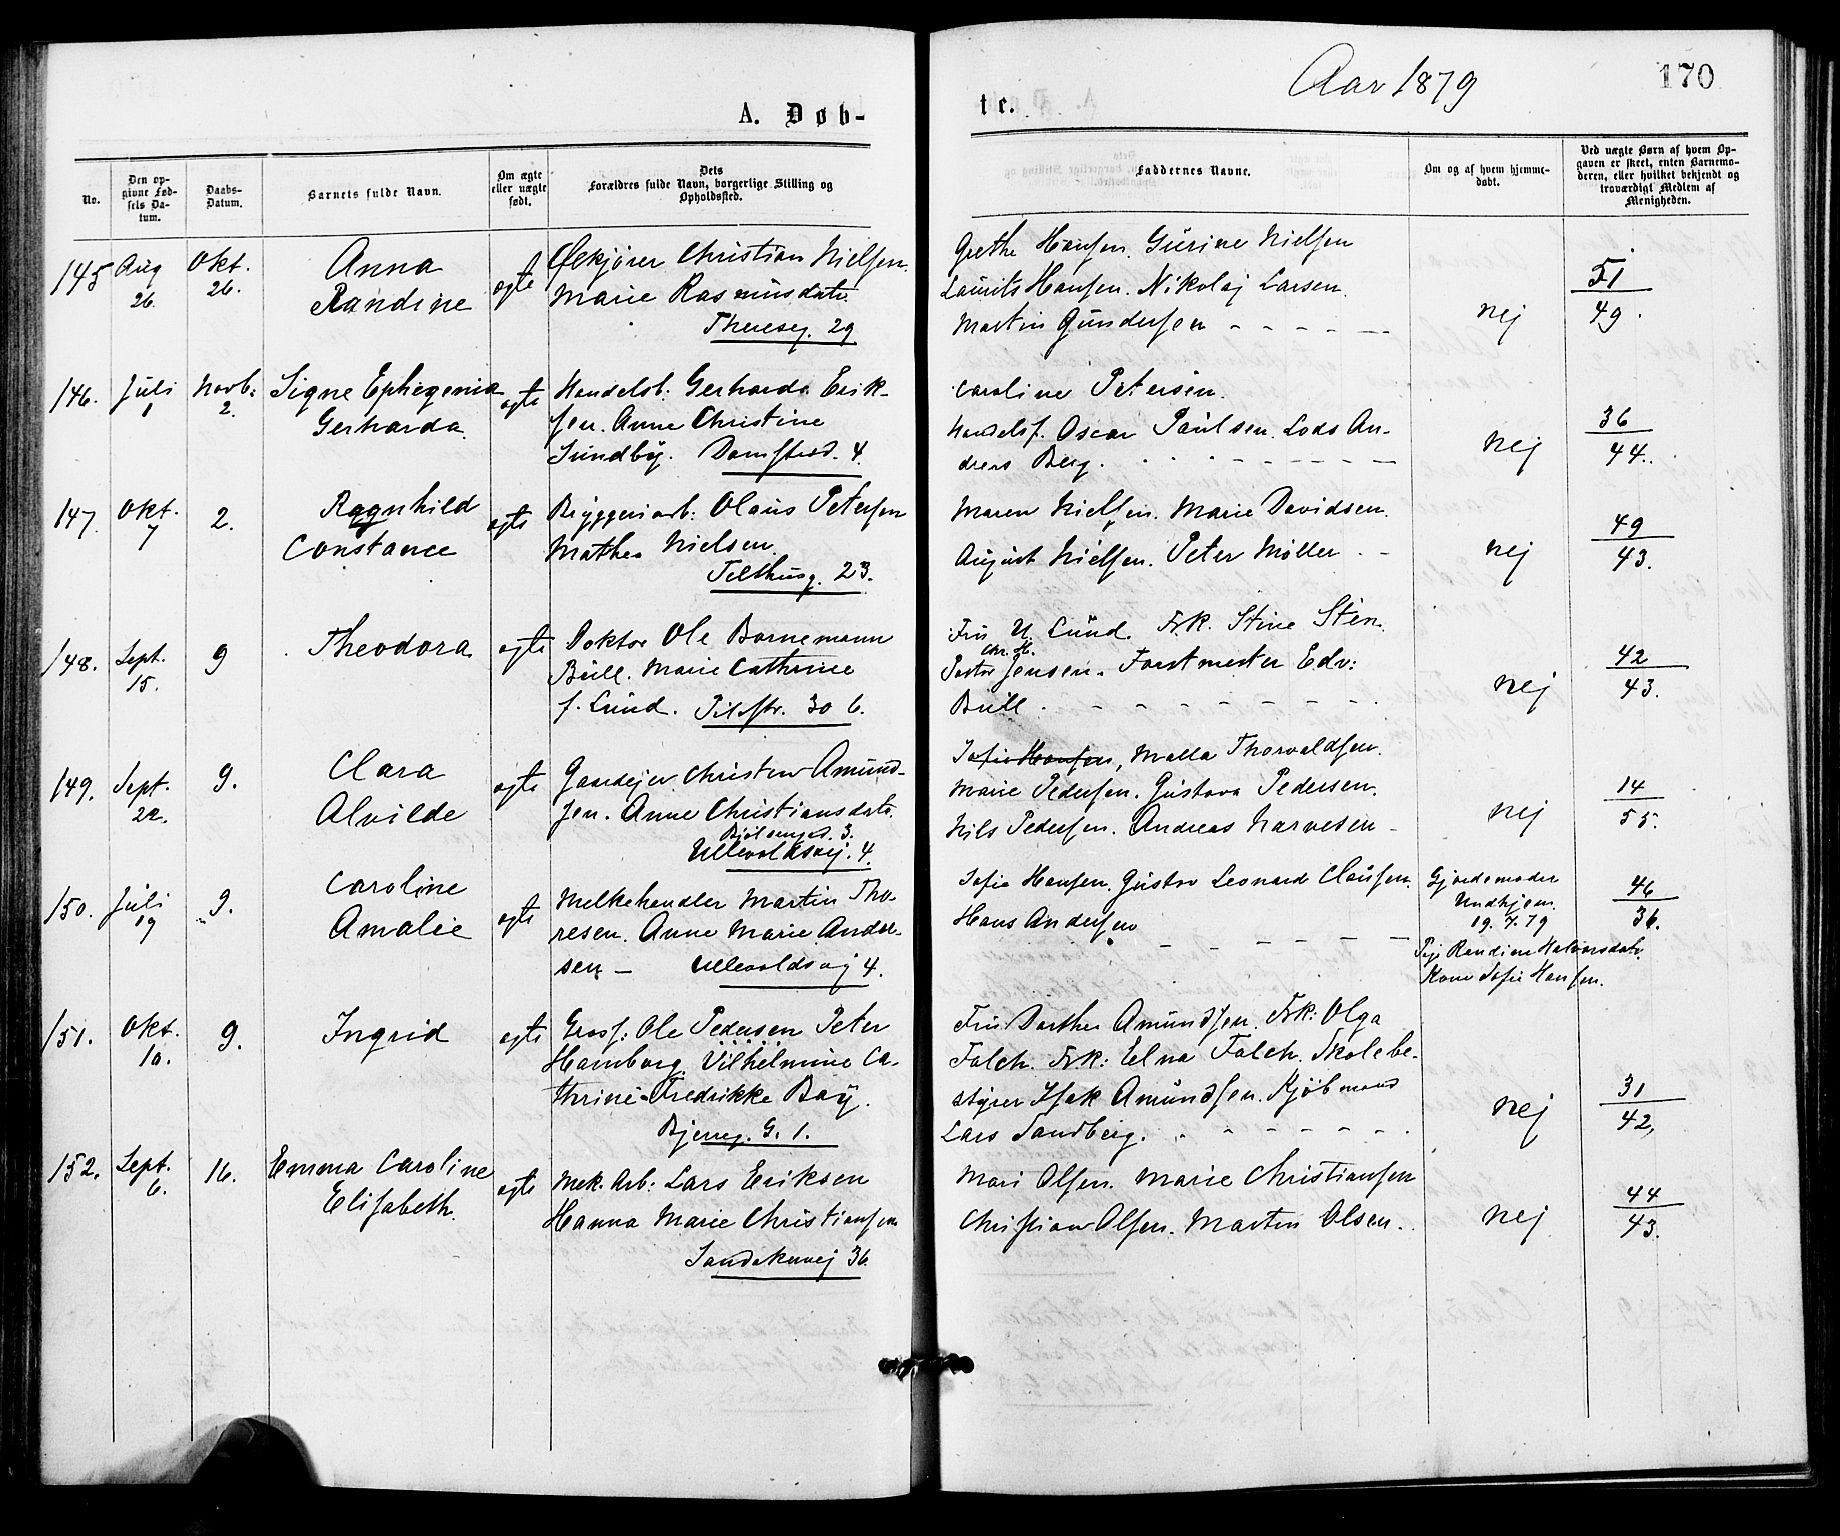 Aar 1879
170
A. Døb-
te.
No.
Den op-
givne Fød-
sels Da-
tum.
Daabs-
Datum.
Barnets fulde Navn.
Om ægte
eller uægte
født.
Dets
Forældres fulde Navn, borgerlige Stilling og
Opholdssted.
Faddernes Navne.
Om og af hvem hjemme-
døbt.
Ved uægte Børn af hvem Op-
gaven er skeet, enten Barnemo-
deren, eller hvilket bekjendt og
troværdigt Medlem af
Menigheden.
145 Aug 26. Okt. 26.
Anna
Randine
ægte
Ølkjører Christian Nielsen.
Marie Rasmusdatr.
Thereseg. 29
Grethe Hansen. Gurine Nielsen
Laurits Hansen. Nikolaj Larsen.
Martin Gundersen
nej
51
49.
146. Juli 1 Novb: 2.
Signe Ephegenia
Gerharda
ægte
Handelsb: Gerhard Erik-
sen. Anne Christine
Sundby. Damstrd. 4.
Caroline Petersen.
Handelsf. Oscar Paulsen. Lods An-
dreas Berg.
nej
36
44.
147. Okt. 7 2.
Ragnhild
Constance
ægte
Bryggeriarb: Olaus Petersen
Mathea Nielsen
Telthusg. 23.
Maren Nielsen. Marie Davidsen.
August Nielsen. Peter Møller
nej
49
43.
148. Sept. 15. 9
Theodora
ægte
Doktor Ole Bornemann
Bull. Marie Cathrine
f. Lund. Pilestr. 30 b.
Fru U. Lund. Frk. Stine Sten.
Chr. H.
Pastor Jensen. Forstmester Edv:
Bull.
nej
42
43.
149. Sept. 22. 9.
Clara
Alvilde
ægte
Gaardejer Christen Amund-
sen. Anne Christiansdatr.
3.
Ullevoldsvej. 4.
Sofie Hansen, Malla Thorvaldsen.
Marie Pedersen. Gustava Pedersen.
Nils Pedersen. Andreas Narvesen
nej
14
55.
150. Juli 19 9.
Caroline
Amalie
ægte
Melkehandler Martin Tho-
resen. Anne Marie Ander-
sen Ullevoldsvej 4.
Sofie Hansen. Gustav Leonard Clausen.
Hans Andersen
Gjordemoder
Undhjem.
19.7.79
Pige Randine Halvorsdatr.
Kone Sofie Hansen.
46
36.
151. Okt. 10. 9.
Ingrid
ægte
Gross: Ole Pedersen Peter
Hamborg. Vilhelmine Ca-
thrine Fredrikke Bay.
Bjerreg. G. 1.
Fru Dorthea Amundsen. Frk: Olga
Falch. Frk: Elna Falch. Skolebe-
styrer Isak Amundsen. Kjøbmand
Lars Sandberg.
nej
31
42,
152. Sept. 6. 16.
Emma Caroline
Elisabeth.
ægte
Mek. Arb: Lars Eriksen
Hanna Marie Christiansen
Sandakervej 36
Mari Olsen. Marie Christiansen
Christian Olsen. Martin Olsen.
nej
44
43.